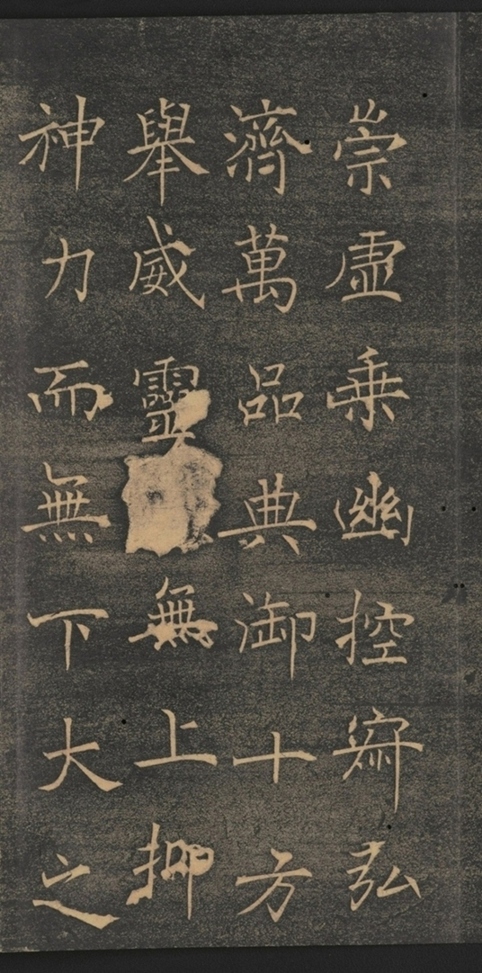 崇虛乘幽控寂弘
濟萬品典御十方
舉威靈無上抑
神力而無下大之